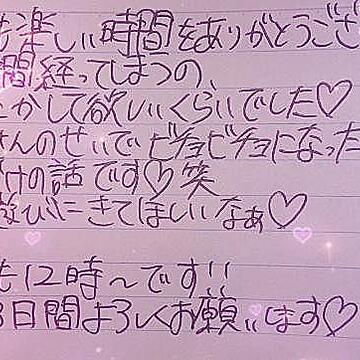 も楽しい時間をありがとうござ
間経ってしまうの、
とかして欲しいくらいでした♡
さんのせいでビチョビチョになった
けの話です♡笑
遊びにきてほしいなぁ♡
も12時〜です!!
3日間よろしくお願いします♡